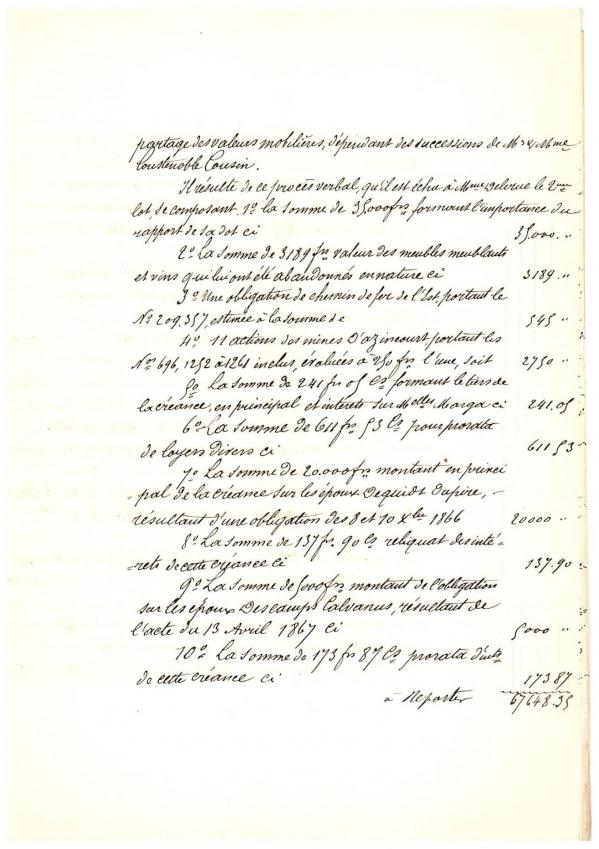 partage des valeurs mobilières, dépendant des successions de Mr & Mme
Coustenoble Cousin.
Il résulte de ce procès verbal, qu'il est échu à Mme Delerue le 2me
lot, se composant, 1o la somme de 35000 frs formant l'importance du
rapport de sa dot ci 35000. "
2o La somme de 3189 frs valeur des meubles meublants
et vins qui lui ont été abandonnés en nature ci 3189 "
3o Une obligation de chemin de fer de l'Est, portant le
No 209.357, estimée à la somme de 545 "
4o 11 actions des mines d'azincourt portant les
Nos 696, 1252 à 1261 inclus, évaluées à 250 frs l'une, soit 2750 "
5o La somme de 241 frs 05 Cs formant le tiers de
la créance, en principal et interêts sur Melles Marga ci 241.05
6o La somme de 611 frs 53 Cs pour prorata
de loyers divers ci 611 53
7o La somme de 20.000 frs montant en princi
pal de la créance sur les époux Dequidt Dupire, -
résultant d'une obligation des 8 et 10 Xbre 1866 20000 "
8o La somme de 137 frs 90 Cs reliquat des inté-
=rets de cette créance ci 137.90
9o La somme de 5000 frs montant de l'obligation
sur les époux Descamps Calvanus, résultant de
l'acte du 13 Avril 1867 Ci 5000 "
10o La somme de 173 frs 87 Cs prorata d'ints
de cette créance ci 173 87
à Reporter 67648.35